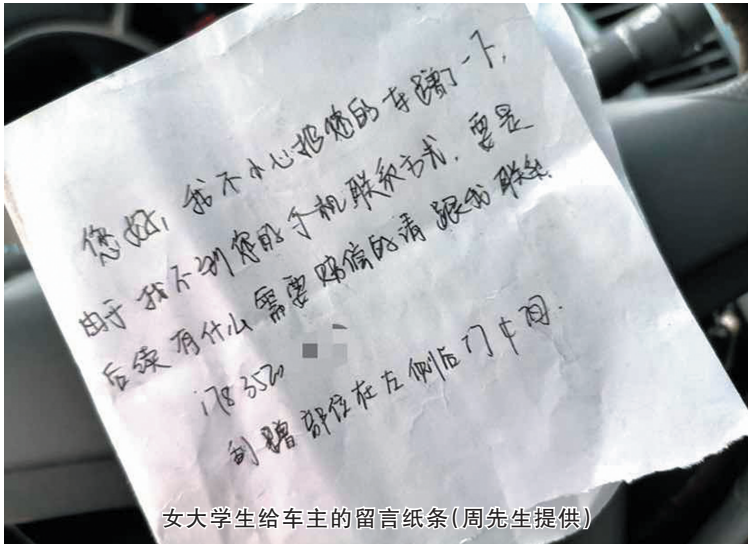 您好,我不小心把您的车蹭了一下,
由于找不到您的手机联系方式,要是
后续有什么需要赔偿的请跟我联系
178 3520
刮蹭部位在左侧后门中间.
女大学生给车主的留言纸条(周先生提供)